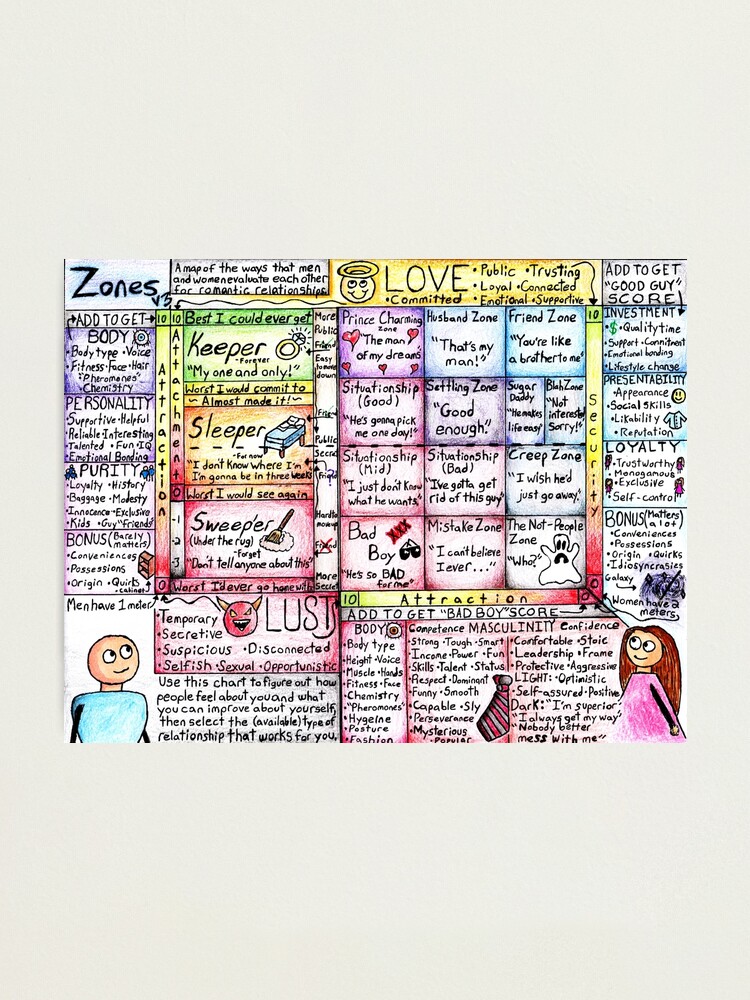 Zones
v3
A map of the ways that men
and women evaluate each other
for romantic relationships.
LOVE
•Public •Trusting
•Loyal •Connected
•Committed Emotional •Supportive
ADD TO GET
"GOOD GUY"
SCORE!
ADD TO GET
BODY
Body type •Voice
•Fitness•Face•Hair
"Pheromones"
•Chemistry
PERSONALITY
Supportive•Helpful
•Reliable•Interesting
•Talented •Fun•IQ
•Emotional Bonding
PURITY
•Loyalty •History
•Baggage •Modesty
•Innocence•Exclusive
•Kids •Guy "Friends"
BONUS (Barely matters)
•Conveniences
•Possessions
•Origin •Quirks
cabinet
Men have 1 meter
10
Attraction
0
10
Attachment
0
-1
-2
-3
Best I could ever get
Keeper
-Forever
"My one and only!"
Worst I would commit to
~ Almost made it! ~
Sleeper
-For now
"I don't Know where I'm
I'm gonna be in three weeks"
Worst I would see again
Sweeper
(Under the rug)
-Forget
"Don't tell anyone about this"
Worst I'd ever go home with
More
Public
Friend
Easy
to move
down
Public
Secret
Hard to
move up
Friend
More
Secret
Prince Charming
Zone
"The man
of my dreams"
Husband Zone
"That's my
man!"
Friend Zone
"You're like
a brother to me"
Situationship
(Good)
"He's gonna pick
me one day!"
Settling Zone
"Good
enough."
Sugar
Daddy
"He makes
life easy"
Blah Zone
"Not
interested
Sorry!"
Situationship
(Mid)
"I just don't Know
what he wants."
Situationship
(Bad)
"I've gotta get
rid of this guy"
Creep Zone
"I wish he'd
just go away."
Bad
Boy
XXX
"He's so BAD
for me"
Mistake Zone
"I can't believe
I ever..."
The Not-People
Zone
"Who?"
10
Security
0
10 Attraction 0
INVESTMENT
•$ •Quality time
•Support •Commitment
•Emotional bonding
•Lifestyle change
PRESENTABILITY
•Appearance
•Social Skills
•Likability
•Reputation
LOYALTY
•Trustworthy
•Monogamous
•Exclusive
•Self-control
BONUS (Matters a lot)
•Conveniences
•Possessions
•Origin •Quirks
•Idiosyncrasies
Galaxy
Women have 2
meters,
LUST
•Temporary
•Secretive
•Suspicious •Disconnected
•Selfish •Sexual •Opportunistic
Use this chart to figure out how
people feel about you and what
you can improve about yourself,
then select the (available) type of
relationship that works for you.
ADD TO GET "BAD BOY" SCORE
BODY
•Body type
•Height •Voice
•Muscle •Hands
•Fitness •Face
•Chemistry
"Pheromones"
•Hygeine
•Posture
•Fashion
Competence MASCULINITY Confidence
Strong •Tough •Smart
•Income •Power •Fun
•Skills •Talent •Status
•Respect •Dominant
•Funny •Smooth
•Capable •Sly
•Perseverance
•Mysterious
•Popular
•Comfortable •Stoic
•Leadership •Frame
•Protective •Aggressive
LIGHT: •Optimistic
•Self-assured •Positive
Dark: "I'm superior"
"I always get my way"
"Nobody better
mess with me"